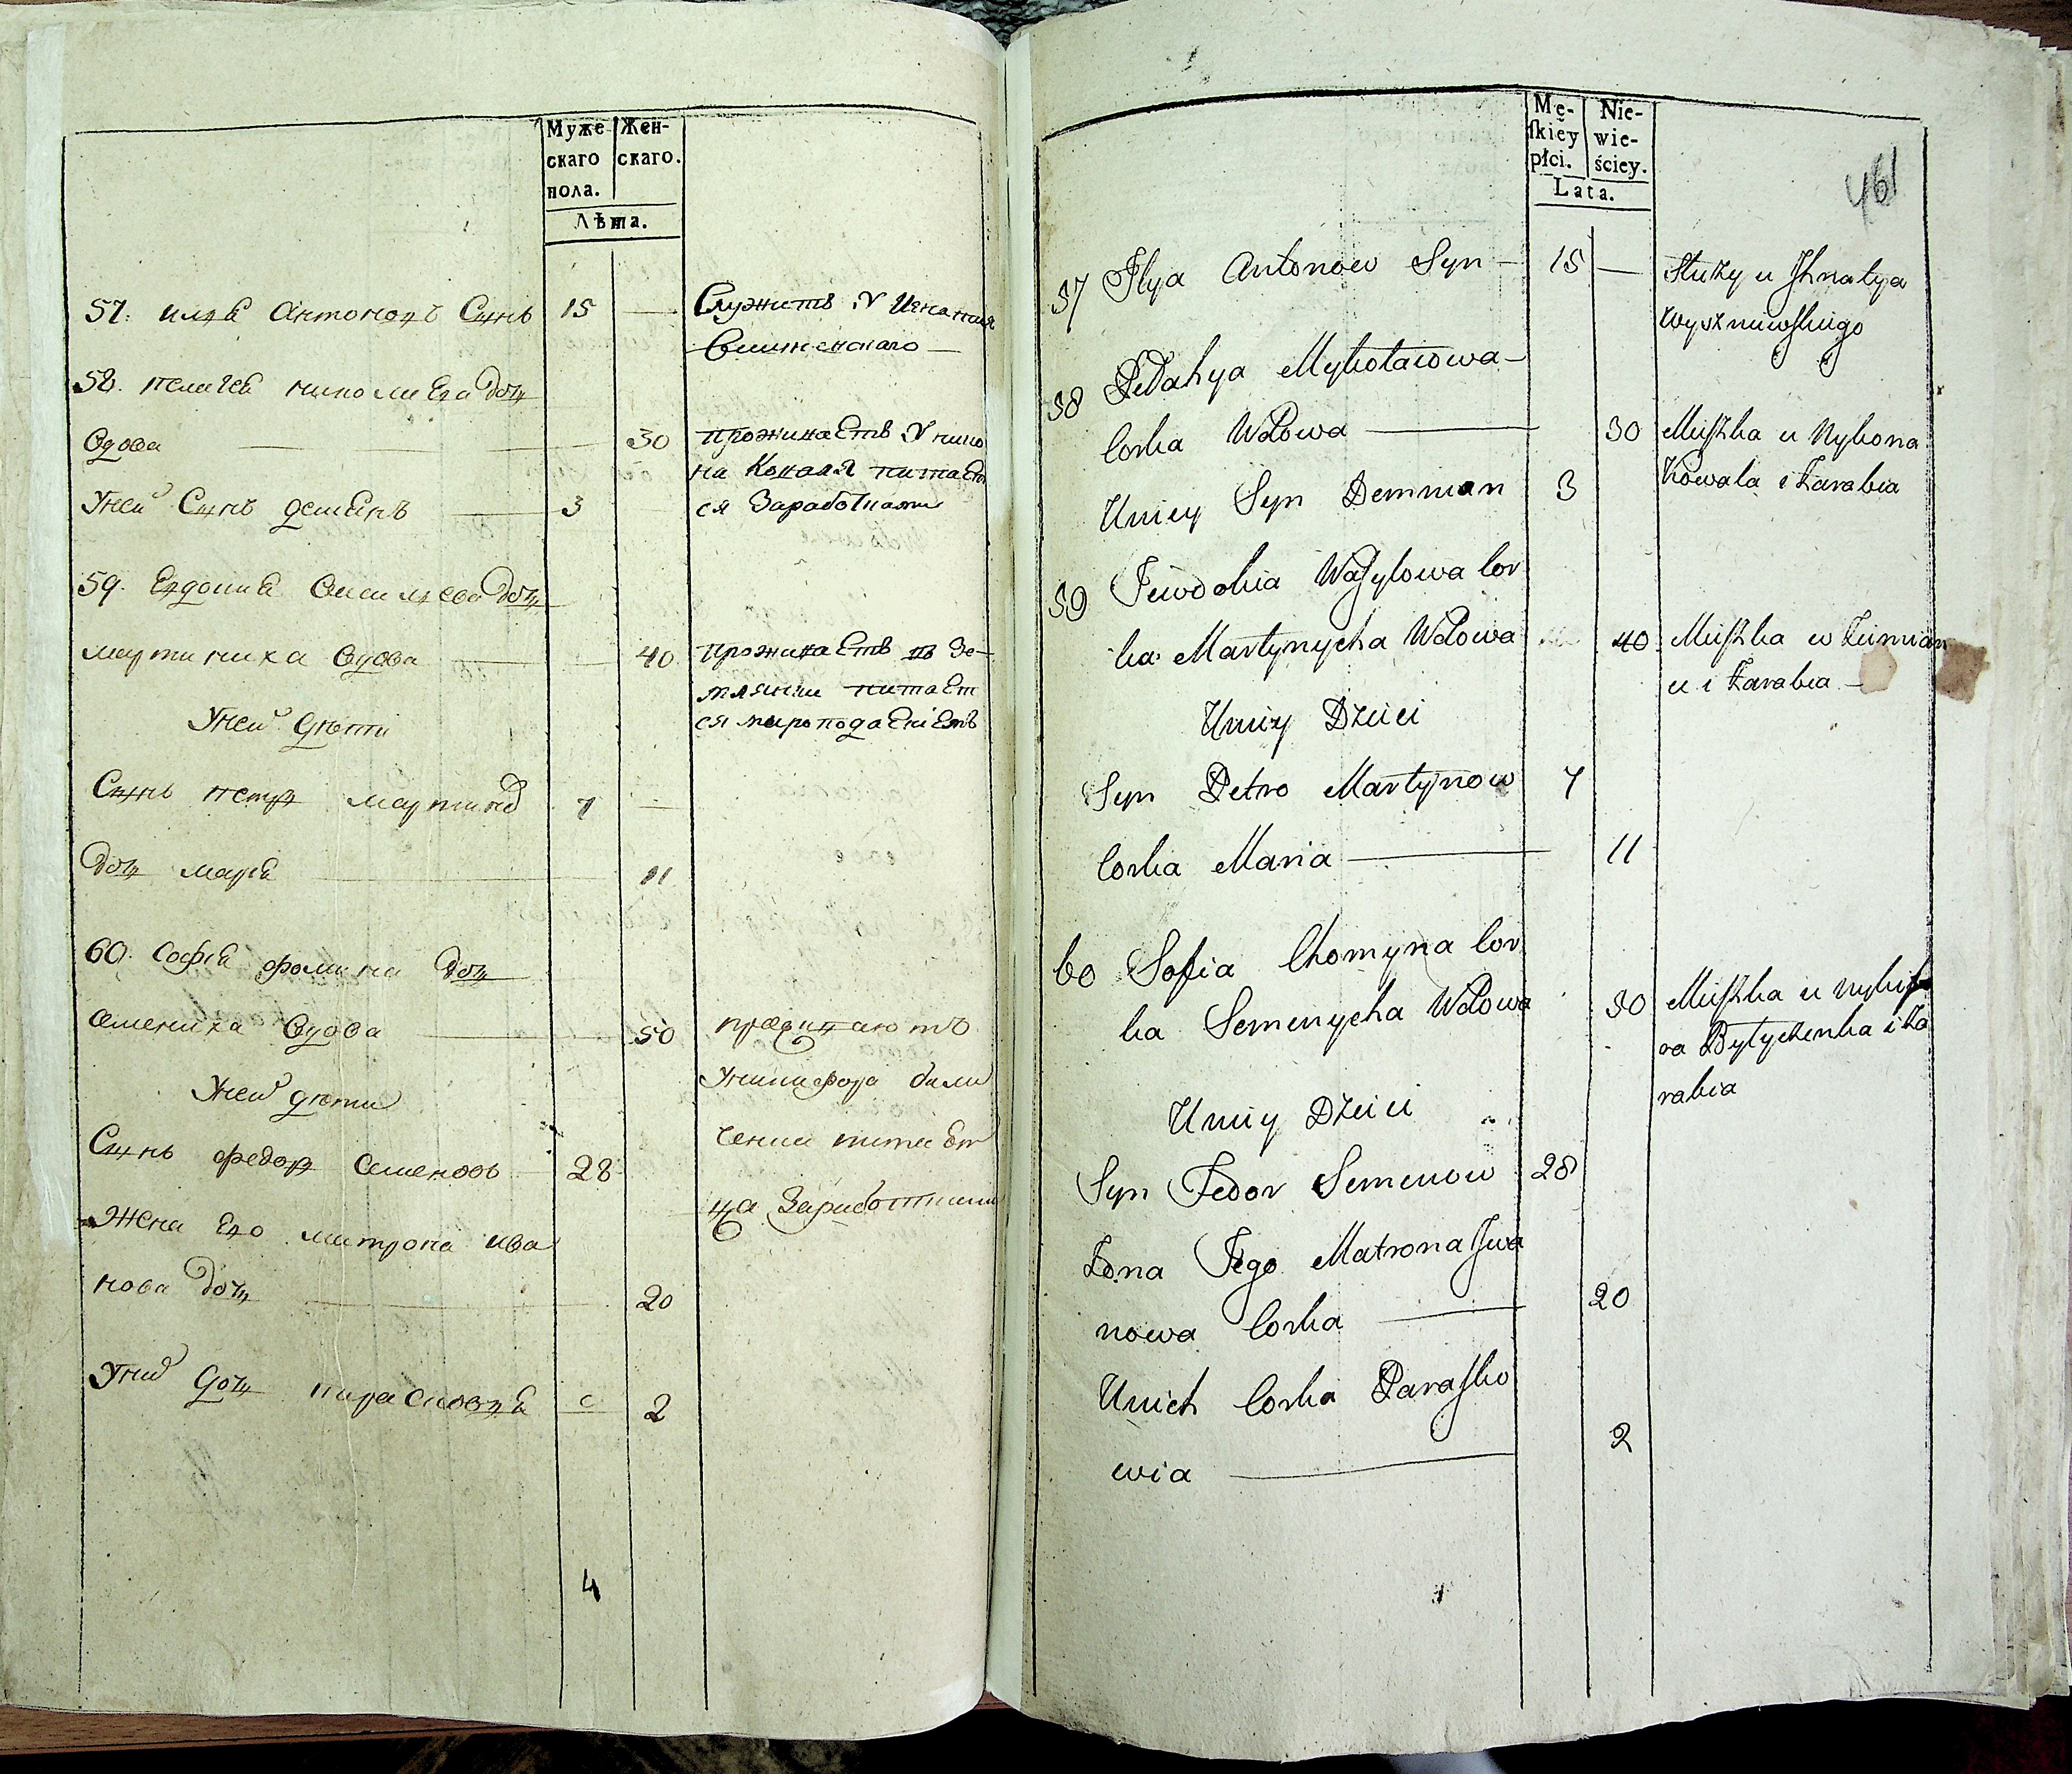 Муже
скаго
пола.
Жен-
скаго.
Лѣта.
57. илѣя Антоновъ Сынъ 15 — Служитъ У Игнатия
Вишневскаго —
58. пелагея николаева дочь
вдова — 30 проживаетъ У нико
на Коваля питает
Уней Сынъ демянъ — 3 ся Заработками
59. Евдокия василиева дочь
мартиниха вдова — 40 проживаетъ въ Зе-
млянки питает
Уней дѣти ся мироподаениемъ
Сынъ петръ мартинов 7 —
дочь марья — 11
60. софия фомина дочь
семениха вдова — 50
Уней дѣти Уникифора били
ченка питает
Сынъ федоръ семеновъ 28
ца Заработками
Жена Его матрона ива
нова дочь — 20
Уних дочь парасковѣя 2
4
Mę-
skiey
płci.
Nie-
wie-
ściey.
Lata.
461
57 Jlya Antonow Syn — 15 — Służy u Jhnatya
Wyszniewskiego
58 Pelahya Mykołaiowa —
Corka Wdowa — 30 Mieszka u Nykona
Kowala i Zarabia
Uniey Syn Demmian 3
59 Jewdokia Wasylowa Cor
ka Martynycha Wdowa 40 Mieszka w Zemian
u i Zarabia —
Uniey Dzieci
Syn Petro Martynow 7
Corka Maria — 11
60 Sofia Chomyna Cor
ka Semenycha Wdowa 50 Mieszka u Nykifo
ra Bylyczenka i Za
rabia
Uniey Dzieci
Syn Fedor Semenow 28
Zona Jego Matrona Jwa
nowa Corka — 20
Unich Corka Parasko
wia — 2